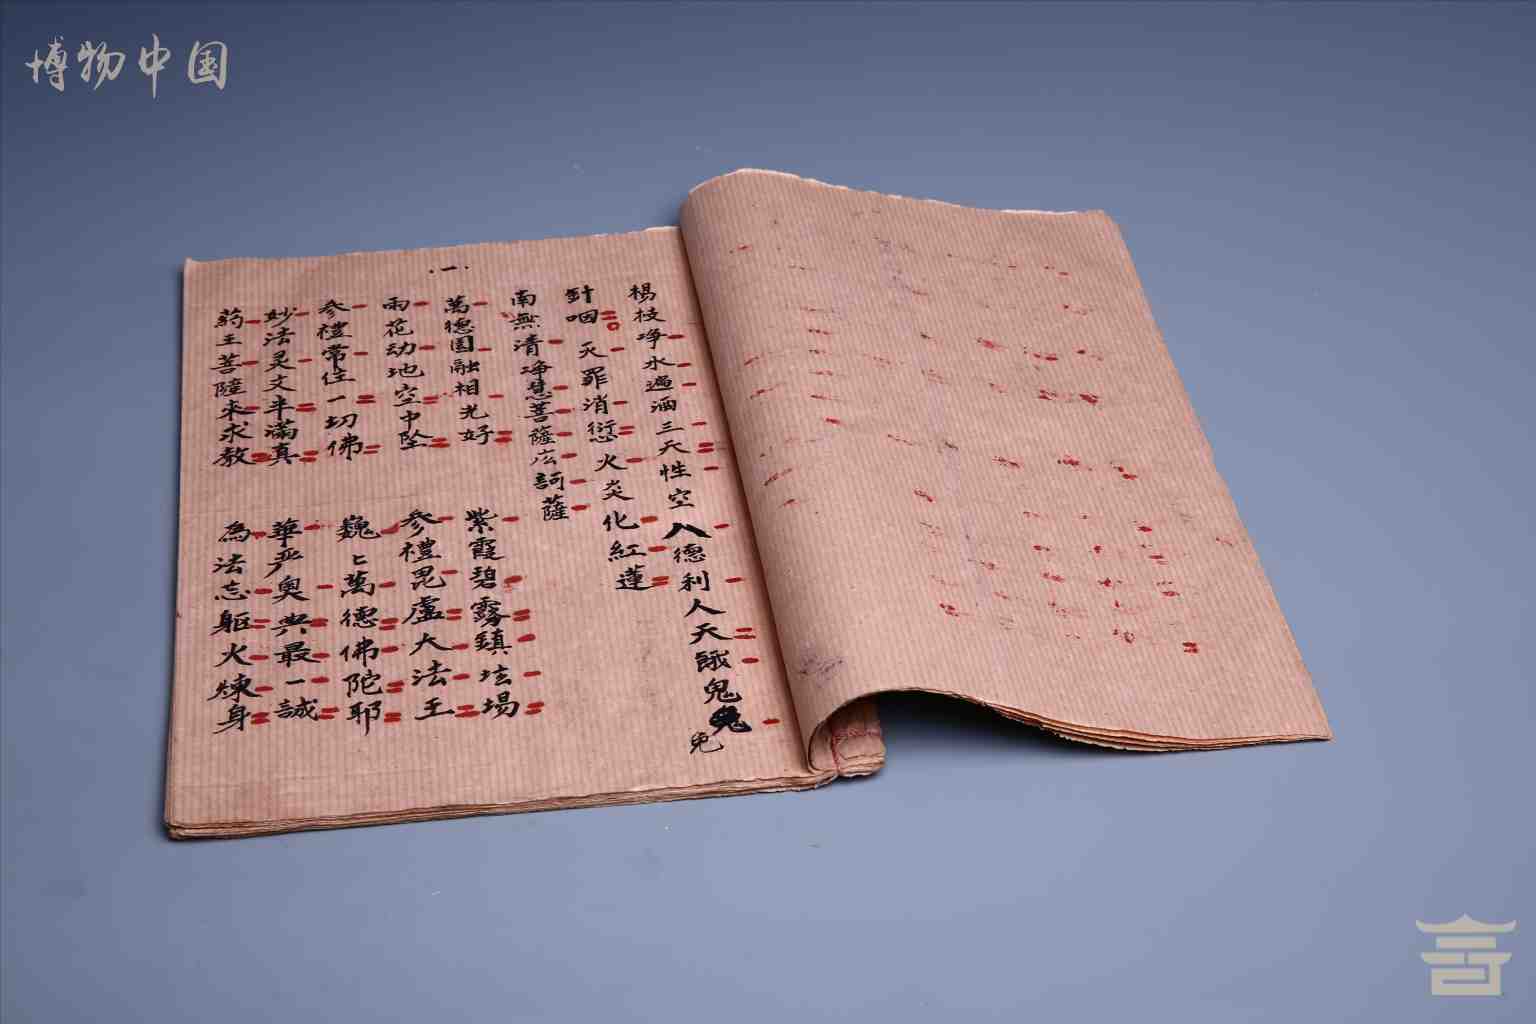 博物中国
楊枝净水遍洒三天性空八德利人天餓鬼免
針咽灭罪消愆火炎化紅蓮
南無清净慧菩薩広訶薩
萬德圓融相光好
紫霞碧霧鎮坛場
雨花动地空中坠
参禮毘盧大法王
参禮常住一切佛
巍〻萬德佛陀耶
妙法灵文半滿真
華严奥典最一誠
药王菩薩來求教
為法忘軀火煉身